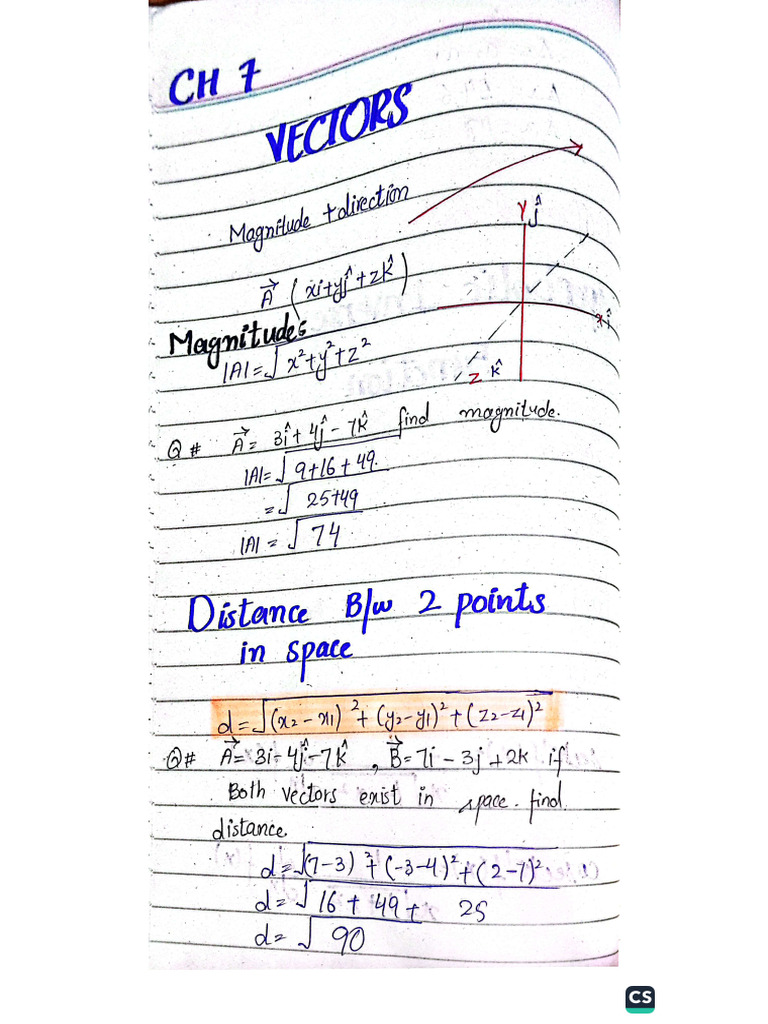 CH 7
VECTORS
Magnitude + direction
Y ĵ
A⃗ (xi+yĵ+zk̂)
xî
Magnitude:
|A|=√x²+y²+z²
z k̂
Q# A⃗= 3î+4ĵ-7k̂ find magnitude.
|A|=√9+16+49.
=√25+49
|A|=√74
Distance B/w 2 points
in space
d=√(x₂-x₁)²+(y₂-y₁)²+(z₂-z₁)²
Q# A⃗=3i-4ĵ-7k̂, B⃗=7i-3j+2k if
Both vectors exist in space. find
distance
d=√(7-3)²+(-3-4)²+(2-7)²
d=√16+49+ 25
d=√90
CS